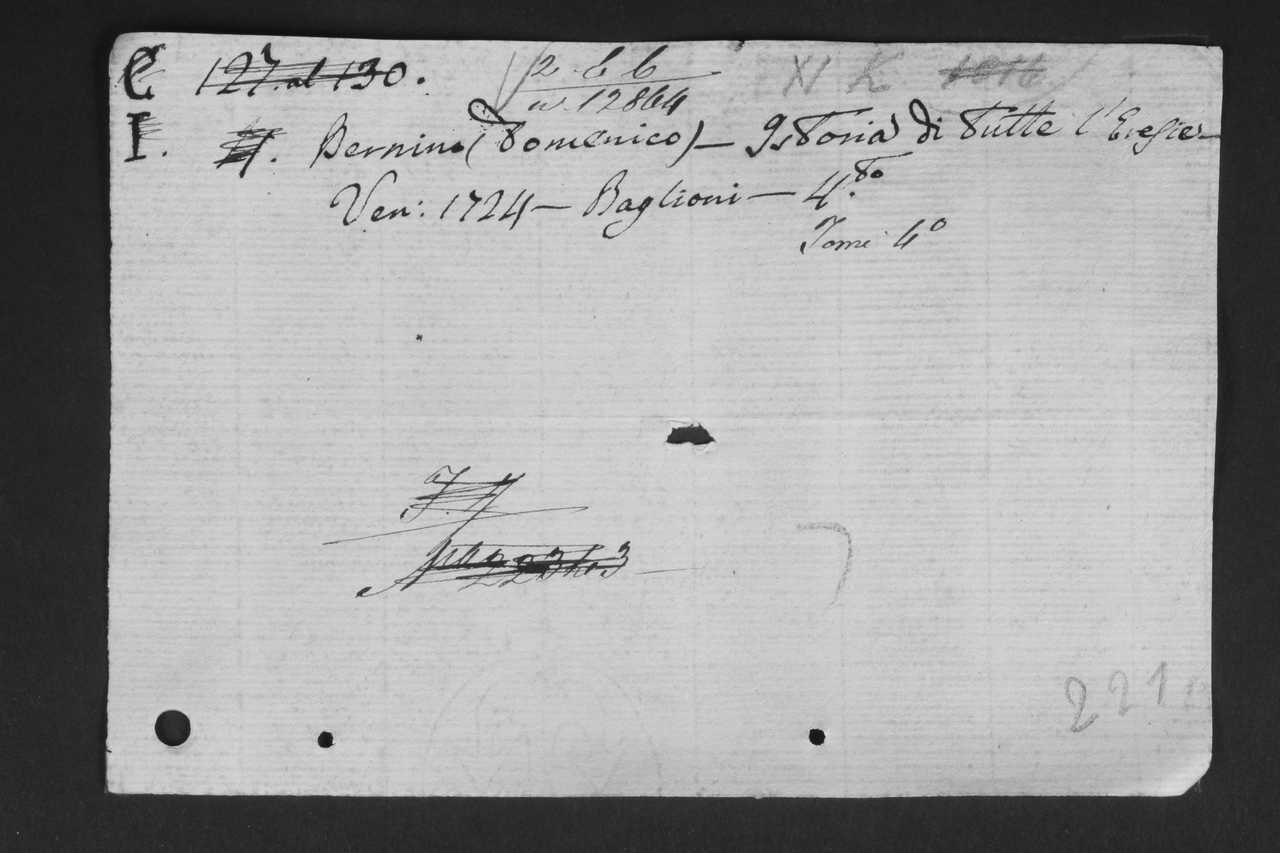 C 127. al 130. 2. b b XI K
n. 12864
I. Bernino (Domenico) — Istoria di tutte l'Eresie
Ven: 1724 — Baglioni — 4.to
Tomi 4°
221